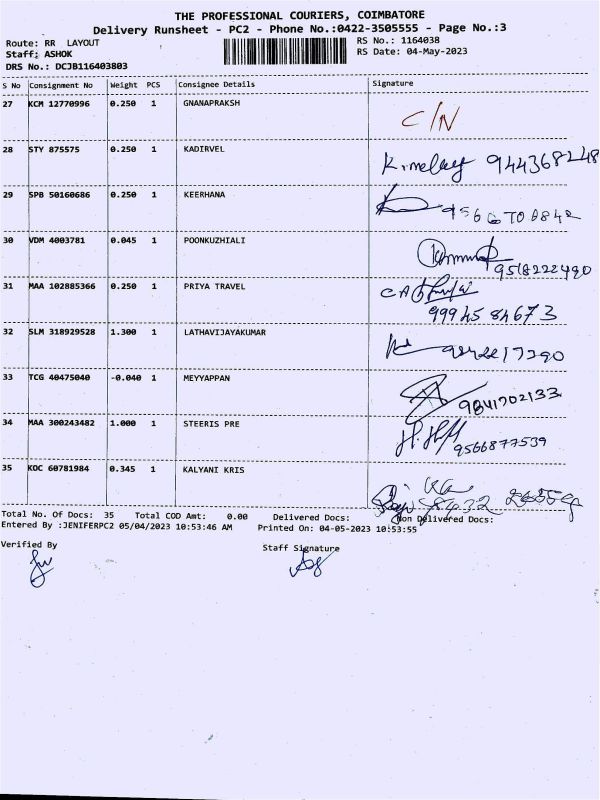 THE PROFESSIONAL COURIERS, COIMBATORE
Delivery Runsheet - PC2 - Phone No.:0422-3505555 - Page No.:3
Route: RR LAYOUT RS No.: 1164038
Staff: ASHOK RS Date: 04-May-2023
DRS No.: DCJB116403803
S No Consignment No Weight PCS Consignee Details Signature
27 KCM 12770996 0.250 1 GNANAPRAKSH C/N
28 STY 875575 0.250 1 KADIRVEL
29 SPB 50160686 0.250 1 KEERHANA
30 VDM 4003781 0.045 1 POONKUZHIALI
9518222490
31 MAA 102885366 0.250 1 PRIYA TRAVEL
99945 84673
32 SLM 318929528 1.300 1 LATHAVIJAYAKUMAR
33 TCG 40475040 -0.040 1 MEYYAPPAN 9841702133
34 MAA 300243482 1.000 1 STEERIS PRE
9566877539
35 KOC 60781984 0.345 1 KALYANI KRIS
Total No. Of Docs: 35 Total COD Amt: 0.00 Delivered Docs: Non Delivered Docs:
Entered By :JENIFERPC2 05/04/2023 10:53:46 AM Printed On: 04-05-2023 10:53:55
Verified By Staff Signature